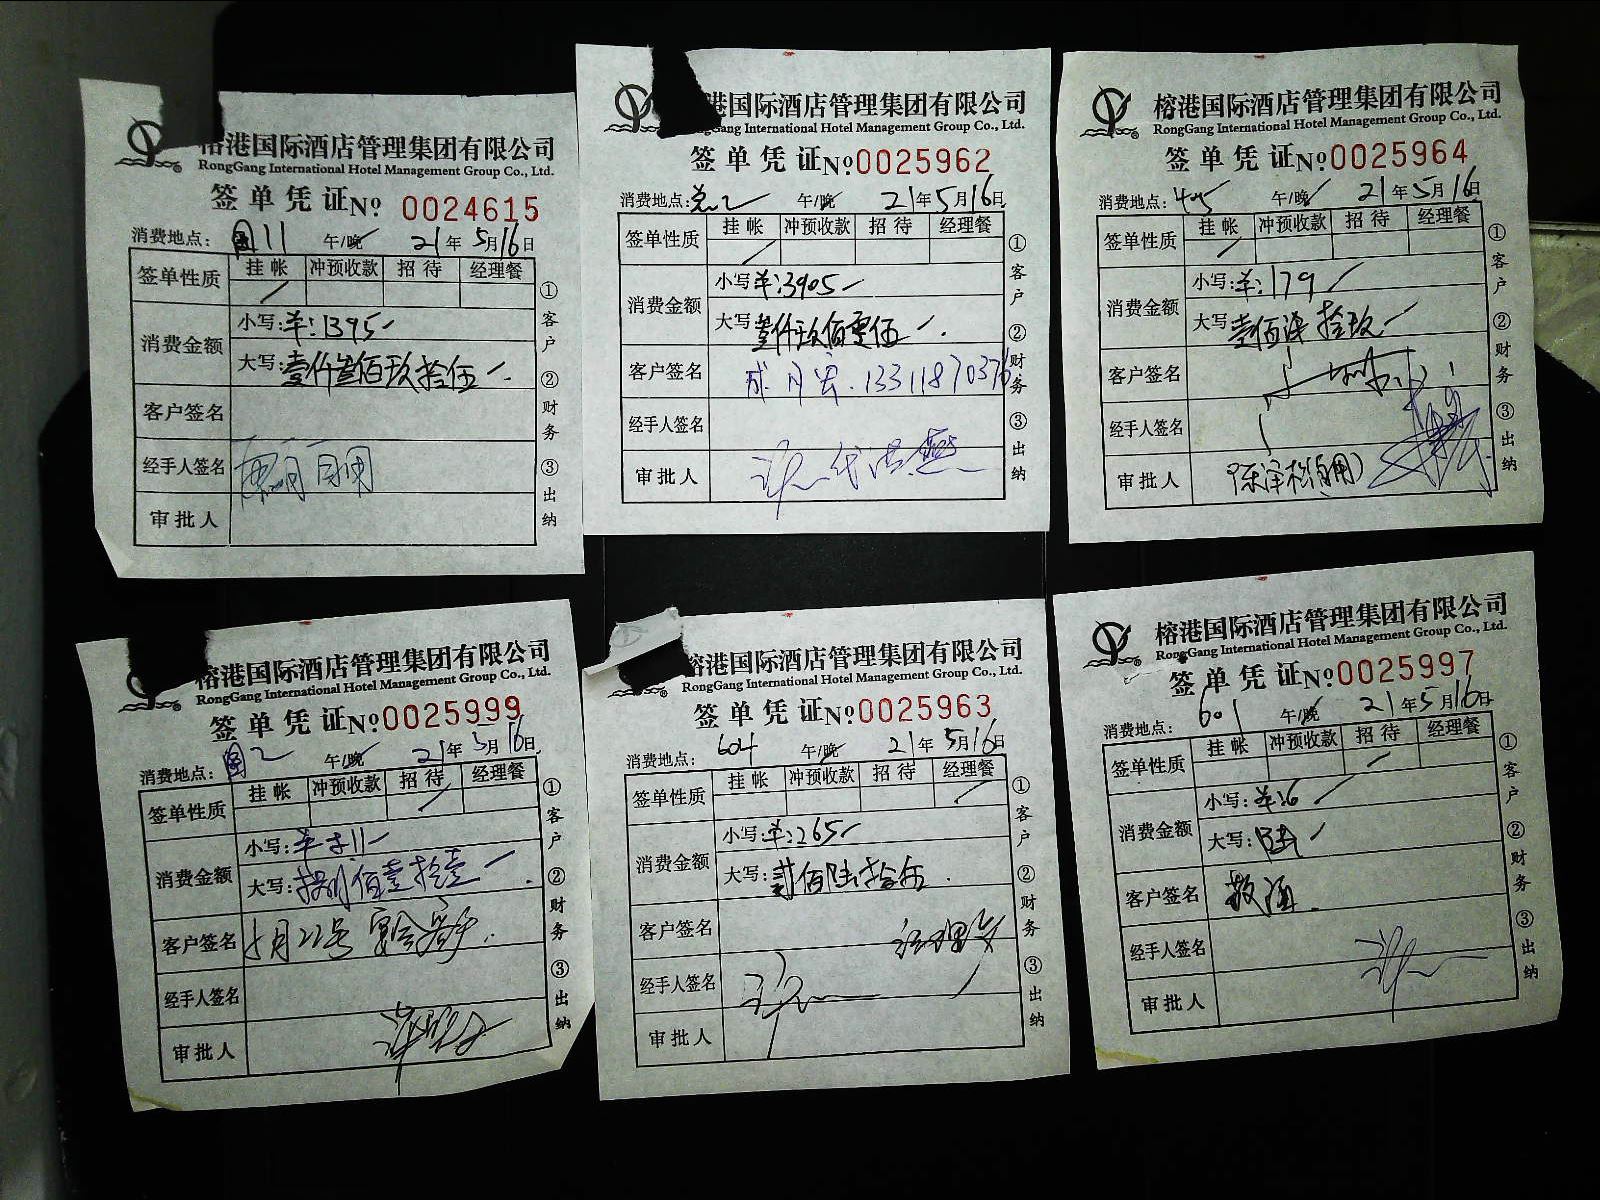 港国际酒店管理集团有限公司
RongGang International Hotel Management Group Co., Ltd.
签单凭证 No 0024615
消费地点: 11 午/晚 21年5月16日
签单性质 挂帐 冲预收款 招待 经理餐
消费金额 小写:羊:1395
大写:壹仟叁佰玖拾伍
客户签名
经手人签名
审批人
①客户 ②财务 ③出纳
港国际酒店管理集团有限公司
Gang International Hotel Management Group Co., Ltd.
签单凭证 No 0025962
消费地点: 午/晚 21年5月16日
签单性质 挂帐 冲预收款 招待 经理餐
消费金额 小写 羊:3905
大写 仟玖佰零伍
客户签名 成月宏.13311870376
经手人签名
审批人
①客户 ②财务 ③出纳
榕港国际酒店管理集团有限公司
RongGang International Hotel Management Group Co., Ltd.
签单凭证 No 0025964
消费地点: 405 午/晚 21年5月16日
签单性质 挂帐 冲预收款 招待 经理餐
消费金额 小写:羊:179
大写 壹佰柒拾玖
客户签名
经手人签名
审批人
①客户 ②财务 ③出纳
榕港国际酒店管理集团有限公司
RongGang International Hotel Management Group Co., Ltd.
签单凭证 No 0025999
消费地点: 午/晚 21年5月16日
签单性质 挂帐 冲预收款 招待 经理餐
消费金额 小写:
大写: 捌佰壹拾壹
客户签名 5月22号宴会
经手人签名
审批人
①客户 ②财务 ③出纳
榕港国际酒店管理集团有限公司
RongGang International Hotel Management Group Co., Ltd.
签单凭证 No 0025963
消费地点: 604 午/晚 21年5月16日
签单性质 挂帐 冲预收款 招待 经理餐
消费金额 小写:羊:265
大写:贰佰陆拾伍
客户签名 经理餐
经手人签名
审批人
①客户 ②财务 ③出纳
榕港国际酒店管理集团有限公司
RongGang International Hotel Management Group Co., Ltd.
签单凭证 No 0025997
消费地点: 601 午/晚 21年5月16日
签单性质 挂帐 冲预收款 招待 经理餐
消费金额 小写:羊:6
大写:陆
客户签名 敬酒
经手人签名
审批人
①客户 ②财务 ③出纳